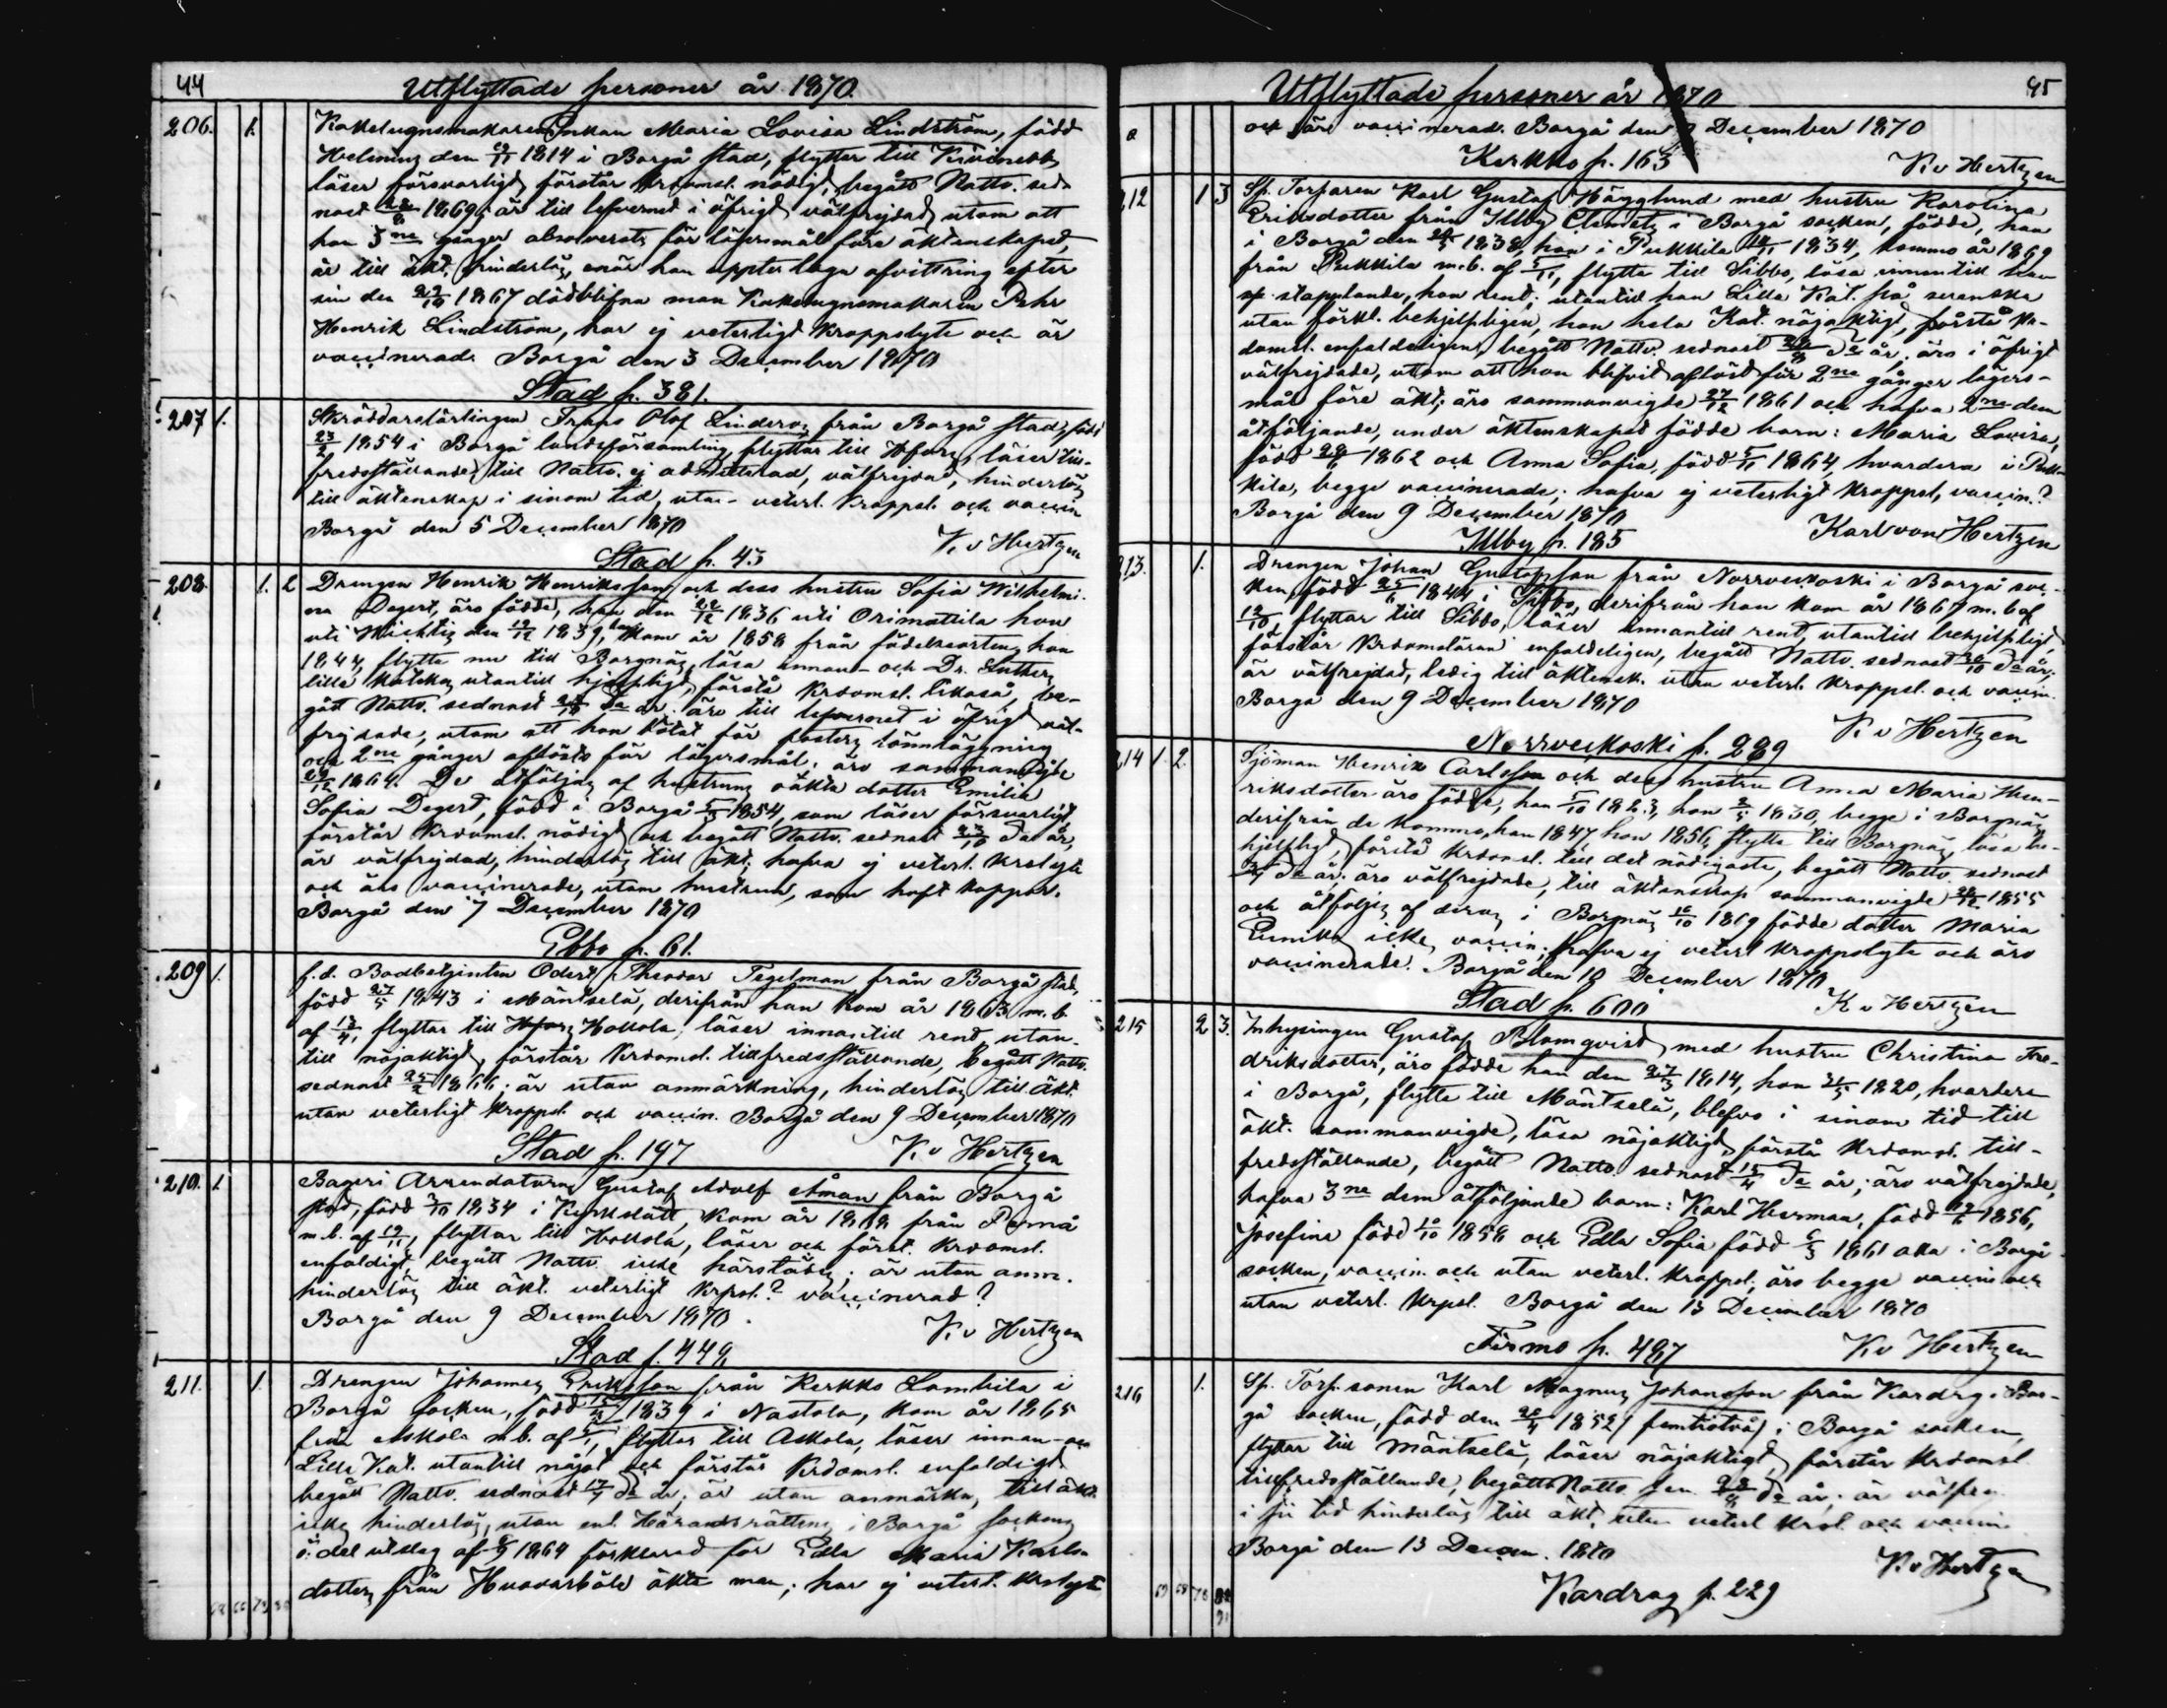 44
Utflyttade personer år 1870.
206. 1. Kakelugnsmakare Enkan Maria Lovisa Lindström, född
den 1814 i Borgå stad, flyttar till Kivinebb,
läser försvarligt, förstår krdomsl. nödigt, begått Nattv. sed-
nast 1869, är till lefvernet i öfrigt välfrejdad utom att
hon 3ne gånger absolverats för lägersmål före äktenskapet,
är till äkt. hinderlös, enär hon uppter laga afvittring efter
sin den 29/10 1867 dödblifna man Kakelugnsmakaren Pehr
Henrik Lindström, har ej veterligt kroppslyte och är
vaccinerad. Borgå den 3 December 1870
Stad p. 381.
207 1. Skräddarelärlingen Frans Olof Linderoz från Borgå stad, född
23/2 1854 i Borgå landsförsamling flyttar till Hfors, läser till-
fredsställande, till Nattv. ej admitterad, välfrejdad, hinderlös
till äktenskap i sinom tid, utan veterl. kroppsl. och vaccin
Borgå den 5 December 1870
K. v Hertzen
Stad p. 43
208. 1. 2 Drengen Henrik Henriksson och dess hustru Sofia Wilhelmi-
na Degert, äro födde, han den 22/12 1836 uti Orimattila hon
uti den 19/12 1839, han kom år 1858 från födelseorten, hon
1844, flytta nu till Borgnäs, läsa innan- och Dr. Luthers
lilla Kateches utantill hjelpligt, förstå krdomsl. likaså, be-
gått Nattv. sednast da år. äro till lefvernet i öfrigt väl-
frejdade, utom att hon bötat för fosters lönnläggning
och 2ne gånger aflösts för lägersmål. äro sammanvigde
29/12 1864. De åtföljas af hustruns oäkta dotter Emilia
Sofia Degert, född i Borgå 1854, som läser försvarligt,
förstår krdomsl. nödigt och begått Nattv. sednast 23/10 da år,
är välfrejdad, hinderlös till äkt. hafva ej veterl. krslyte
och äro vaccinerade, utom hustrun, som haft koppor.
Borgå den 7 December 1870
Ebbo p. 61.
209 1. f.d. Badbetjenten Odert Theodor Tegelman från Borgå stad,
född 27/5 1843 i Mäntselä, derifrån han kom år 1863 m. b.
af flyttar till Hollola, läser innantill rent, utan-
till nöjaktigt, förstår krdomsl. tillfredsställande, begått Nattv.
sednast 25/2 1866; är utan anmärkning, hinderlös till äkt.
utan veterligt kroppsl. och vaccin. Borgå den 9 December 1870
Stad p. 197 K. v Hertzen
210. 1. Bageri Arrendatorn Gustaf Adolf Åman från Borgå
stad, född 3/10 1834 i Kyrkslätt, kom år 1868 från Pernå
m.b. af flyttar till Hollola, läser och först. krdomsl.
enfaldigt, begått Nattv. icke härstädes; är utan anm.
hinderlös till äkt. veterligt krpsl.? vaccinerad?
Borgå den 9 December 1870.
K. v Hertzen
Stad p. 449
211. 1. Drengen Johannes Eriksson från Kerkko Lambila i
Borgå socken, född 1839 i Nastola, kom år 1865
från Askola m.b. af flyttar till Askola, läser innan- och
Lilla Kat. utantill något och förstår krdomsl. enfaldigt
begått Nattv. sednast da år; är utan anmärkn, till äkt.
icke hinderlös, utan enl. Häradsrättens i Borgå sockens
ö. del utslag af 1864 förklarad för Edla Maria Karls-
dotters från Huvarböle äkta man; har ej veterl. krslyte
45
Utflyttade personer år 1870
och äro vaccinerad. Borgå den December 1870
Kerkko p. 163 K. v Hertzen
212 1 3 Sp. Torparen Karl Gustaf Hägglund med hustru Karolina
Eriksdotter från Illby Clemets i Borgå socken, födde, han
i Borgå den 1838, hon i Pukkila 1834, kommo år 1869
från Pukkila m.b. af flytta till Sibbo, läsa innantill han
stapplande, hon rent; utantill han Lilla Kat. på svenska
utan förkl. behjelpligen, hon hela Kat. nöjaktigt, förstå kr-
domsl. enfaldeligen, begått Nattv. sednast da år. äro i öfrigt
välfrejdade, utom att hon blifvit aflöst för 2ne gånger lägers-
mål före äkt; äro sammanvigde 27/12 1861 och hafva 2ne dem
åtföljande, under äktenskapet födde barn: Maria Lovisa,
född 1862 och Anna Sofia, född 1864, hvardera i Puk-
kila, begge vaccinerade; hafva ej veterligt kroppsl, vaccin.?
Borgå den 9 December 1870 Karl von Hertzen
Illby p. 185
213. 1. Drengen Johan Gustafsson från Norrveckoski i Borgå soc-
ken, född 25/6 1844 i Sibbo, derifrån han kom år 1867 m. b af
flyttar till Sibbo, läser innantill rent, utantill behjelpligt,
förstår krdomsläran enfaldeligen, begått Nattv. sednast 30/10 da år;
är välfrejdad, ledig till äktensk. utan veterl. kroppsl. och vaccin.
Borgå den 9 December 1870
K v Hertzen
Norrveckoski p. 289
214 1. 2. Sjöman Henrik Carlsson och dess hustru Anna Maria Hen-
riksdotter äro födde, han 5/10 1823, hon 1830, begge i Borgnäs,
derifrån de kommo, han 1847, hon 1856, flytta till Borgnäs, läsa be-
hjelpligt, förstå krdomsl. till det nödigaste, begått Nattv. sednast
da år. äro välfrejdade, till äktenskap sammanvigde 1855
och åtföljes af deras i Borgnäs 16/10 1869 födde dotter Maria
Eunika icke vaccin; hafva ej veterl kroppslyte och äro
vaccinerade. Borgå den 10 December 1870
Stad p. 600 K. v Hertzen
215 2 3. Inhysingen Gustaf Blomqvist med hustru Christina Fre-
driksdotter, äro födde han den 27/3 1814, hon 1820, hvardera
i Borgå, flytta till Mäntselä, blefvo i sinom tid till
äkt. sammanvigde, läsa nöjaktigt, förstå krdomsl. till-
fredsställande, begått Nattv. sednast 15/4 da år; äro välfrejdade,
hafva 3ne dem åtföljande barn: Karl Herman, född 1856,
Josefina född 1858 och Edla Sofia född 1861 alla i Borgå
socken, vaccin. och utan veterl. kroppsl; äro begge vaccin och
utan veterl. krpsl. Borgå den 13 December 1870
Tirmo p. 487 K. v Hertzen
216 1. Sp. Torp. sonen Karl Magnus Johansson från Kardrg i Bor-
gå socken, född den 1852 (femtiotvå) i Borgå socken,
flyttar till Mäntselä, läser nöjaktigt, förstår krdomsl
tillfredsställande, begått Nattv. sen. da år; är välfrej.
i sin tid hinderlös till äkt. utan veterl krsl. och vaccin.
Borgå den 13 Decem. 1870
K. v Hertzen
Kardrag p. 229